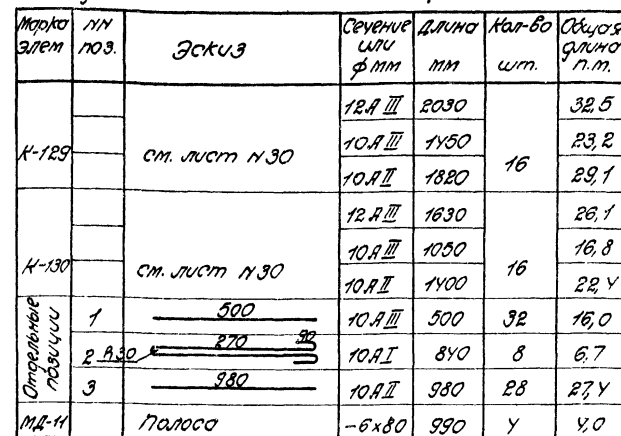 Марка элем NN поз. Эскиз Сечение или ф мм Длина мм Кол-во шт. Общая длина п.м.
К-129 см. лист N30 16
12 А III 2030 32,5
10 А III 1450 23,2
10 А II 1820 29,1
К-130 см. лист N30 16
12 А III 1630 26,1
10 А III 1050 16,8
10 А II 1400 22,4
Отдельные позиции
1 500 10 А III 500 32 16,0
2 R30 270 90 10 А I 840 8 6,7
3 980 10 А II 980 28 27,4
МД-11 Полоса -6×80 990 4 4,0